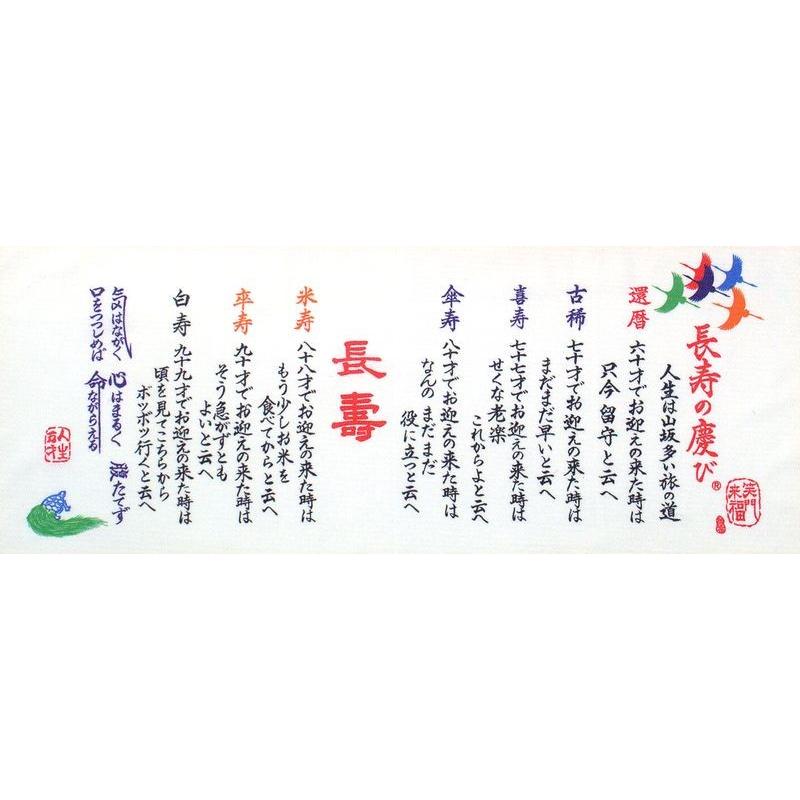 長寿の慶び®
笑門来福
人生は山坂多い旅の道
還暦 六十才でお迎えの来た時は
只今 留守と云へ
古稀 七十才でお迎えの来た時は
まだまだ早いと云へ
喜寿 七十七才でお迎えの来た時は
せくな老楽
これからよと云へ
傘寿 八十才でお迎えの来た時は
なんの まだまだ
役に立つと云へ
長壽
米寿 八十八才でお迎えの来た時は
もう少しお米を
食べてからと云へ
卒寿 九十才でお迎えの来た時は
そう急がずとも
よいと云へ
白寿 九十九才でお迎えの来た時は
頃を見てこちらから
ボツボツ行くと云へ
気はながく 心はまるく 腹たてず
口をつつしめば 命ながらえる